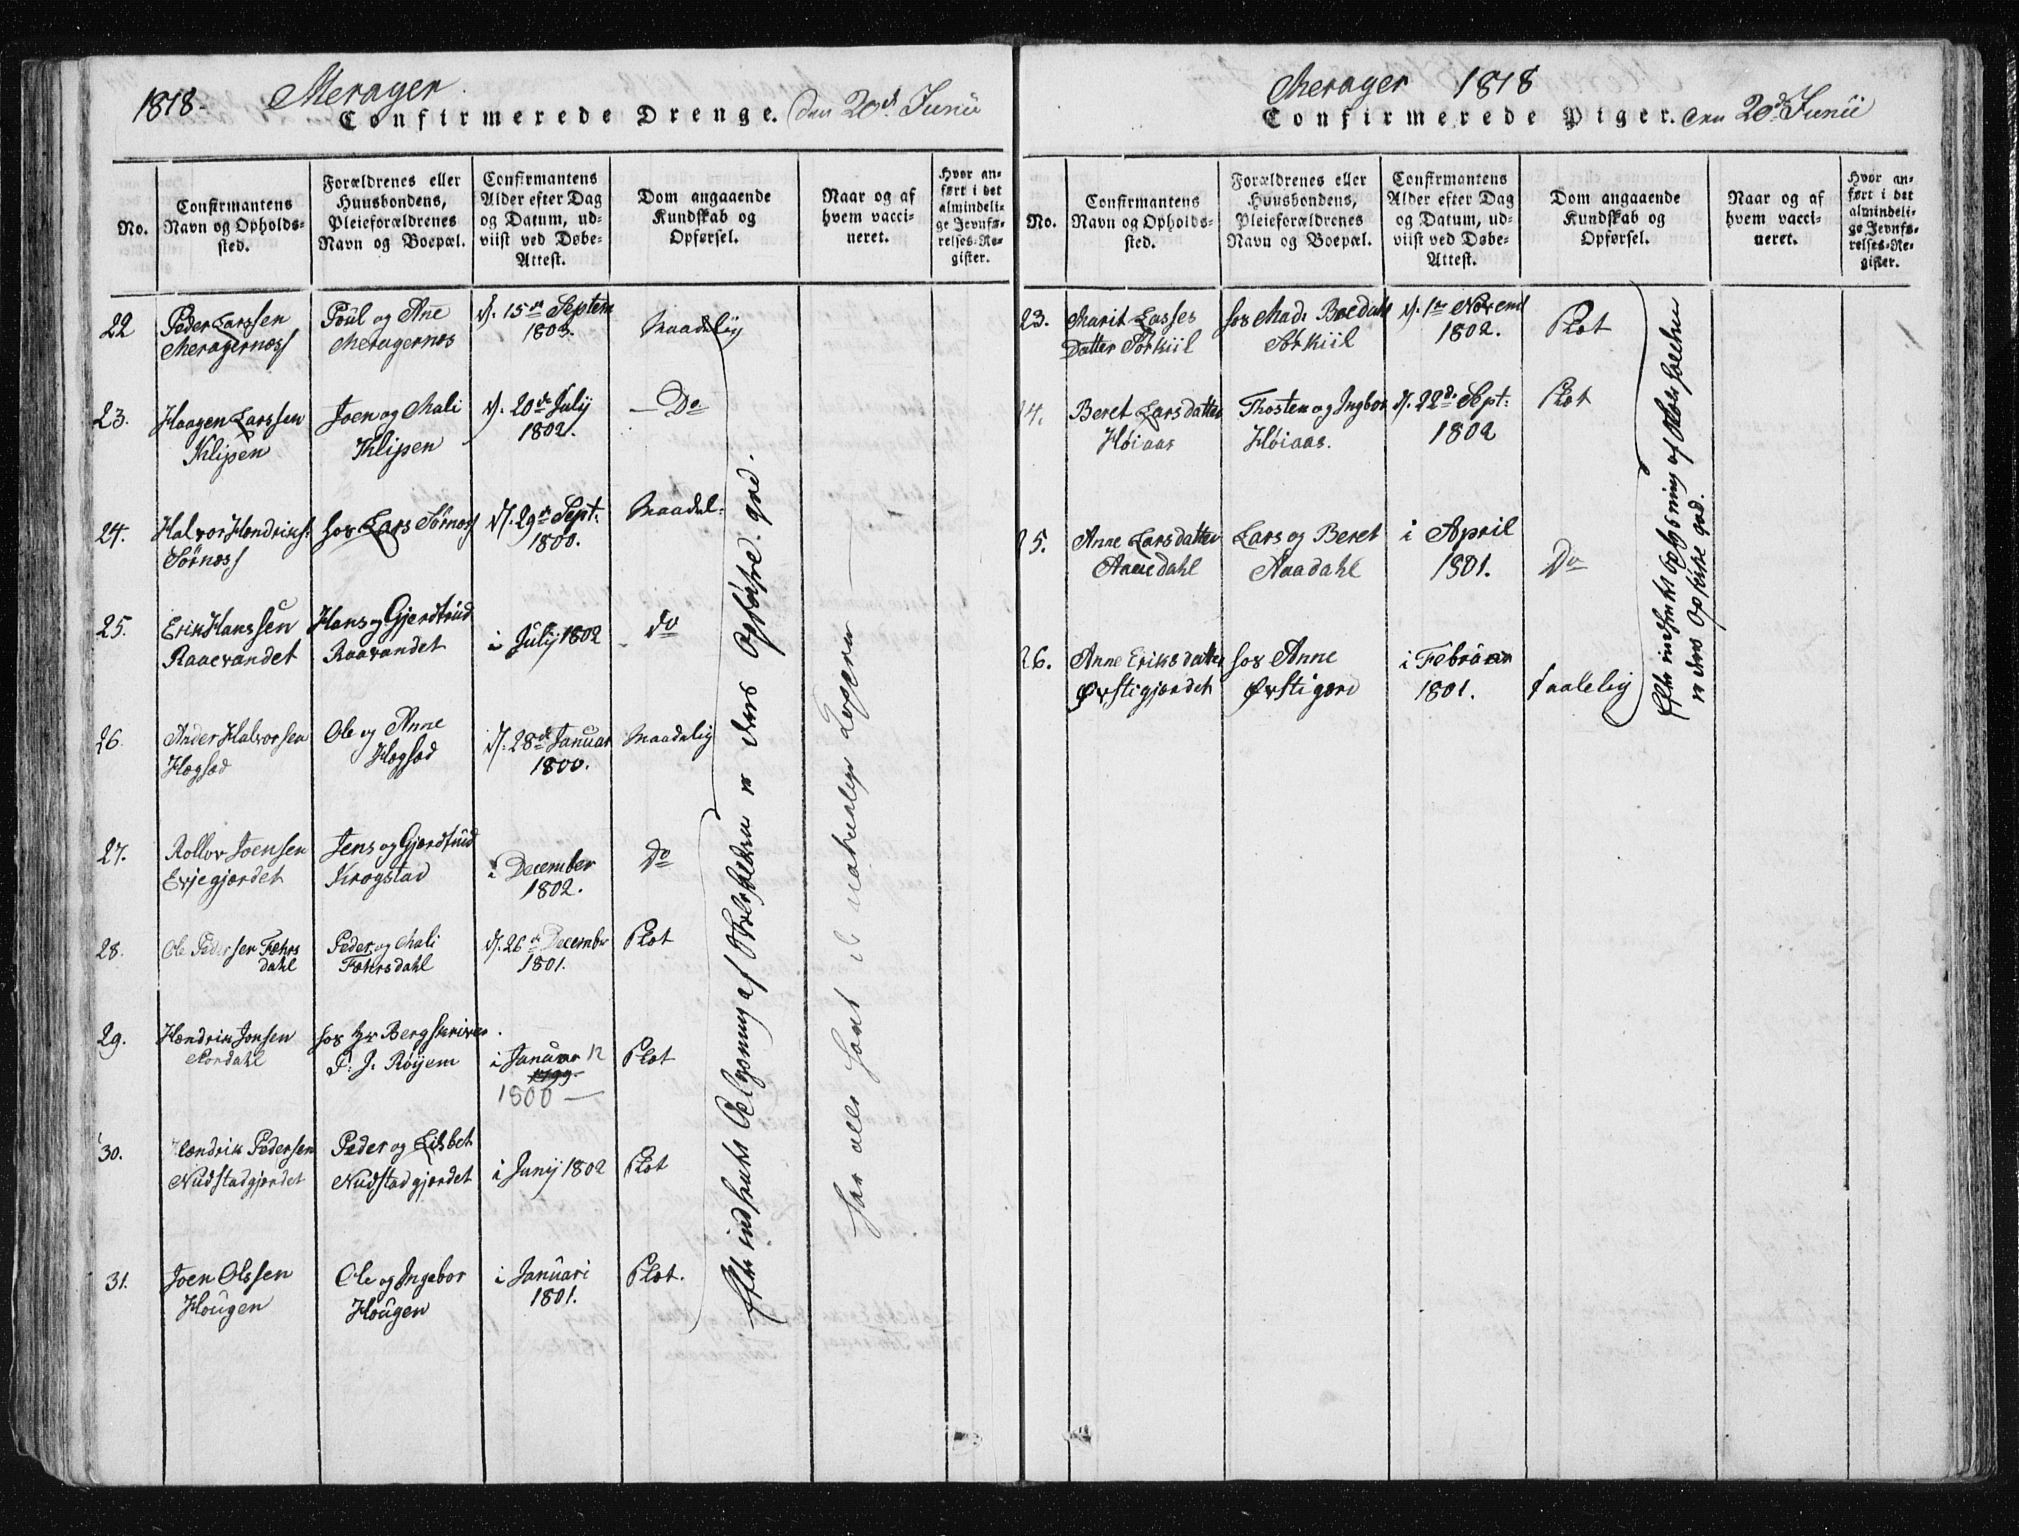 1818.
Merager
Confirmerede Drenge. den 20d Junii
No.
Confirmantens
Navn og Opholds-
sted.
Forældrenes eller
Huusbondens,
Pleieforældrenes
Navn og Boepæl.
Confirmantens
Alder efter Dag
og Datum, ud-
viist ved Døbe-
Attest.
Dom angaaende
Kundskab og
Opførsel.
Naar og af
hvem vacci-
neret.
Hvor an-
ført i det
almindeli-
ge Jevnfø-
relses-Re-
gister.
22
Peder Larssen
Meragernæss
Poul og Ane
Meragernes
d. 15de Septem
1802.
Maadelig
23.
Haagen Larssen
Klipen
Joen og Mali
Klipen
d. 20de July
1802.
Do
24.
Halvor Hendriks:
Sørness
hos Lars Sørness
d. 29de Sept:
1800.
Maadel:
25.
Erik Hanssen
Raaevandet
Hans og Gjerdtrud
Raavandet
i July 1802
Do
26.
Ander Halvorsen
Hægsed
Ole og Anne
Hægsed
d. 28de Januar
1800.
Maadelig
27.
Rollov Joensen
Evjegjærdet
Jens og Gjerdtrud
Krogstad
i December
1802.
Do
28.
Ole Pedersen Fæhrs
dahl
Peder og Mali
Fæhrsdahl
d. 26de December
1801.
Slet
29.
Hændrik Jonsen
Nordahl
hos Hr Bergskriver
P. J. Røyem
i Januar 12
1799.
1800 —
Slet
30.
Hændrik Pedersen
Nustadgjærdet
Peder og Lisbet
Nustadgjærdet
i Juny 1802
Slet
31.
Joen Olssen
Hougen
Ole og Ingebor
Hougen
i Januari
1801.
Slet.
Efter indhentet Oplysning af Medhielperen er deres Opførsel god.
har alle havt de naturlige Kopper
Merager 1818
Confirmerede Piger. den 20de Junii
No.
Confirmantens
Navn og Opholds-
sted.
Forældrenes eller
Huusbondens,
Pleieforældrenes
Navn og Boepæl.
Confirmantens
Alder efter Dag
og Datum, ud-
viist ved Døbe-
Attest.
Dom angaaende
Kundskab og
Opførsel.
Naar og af
hvem vacci-
neret.
Hvor an-
ført i det
almindeli-
ge Jevnfø-
relses-Re-
gister.
23.
Marit Lasses
Datter Torkiil
hos Mad: Boedahl
Torkiil
d. 1te Novemb
1802.
Slet
24.
Beret Larsdatter
Høiaas
Thosten og Ingbor
Høiaas.
d. 22de Sept:
1802
Slet
25.
Anne Larsdatter
Aaedahl
Lars og Beret
Aaadahl
i April
1801.
Do
26.
Anne Eriksdatter
Østigjærdet
hos Anne
Østigære
i Februar
1801.
taalelig
Efter indhentet Oplysning af Medhielperen
er deres Opførsel god.